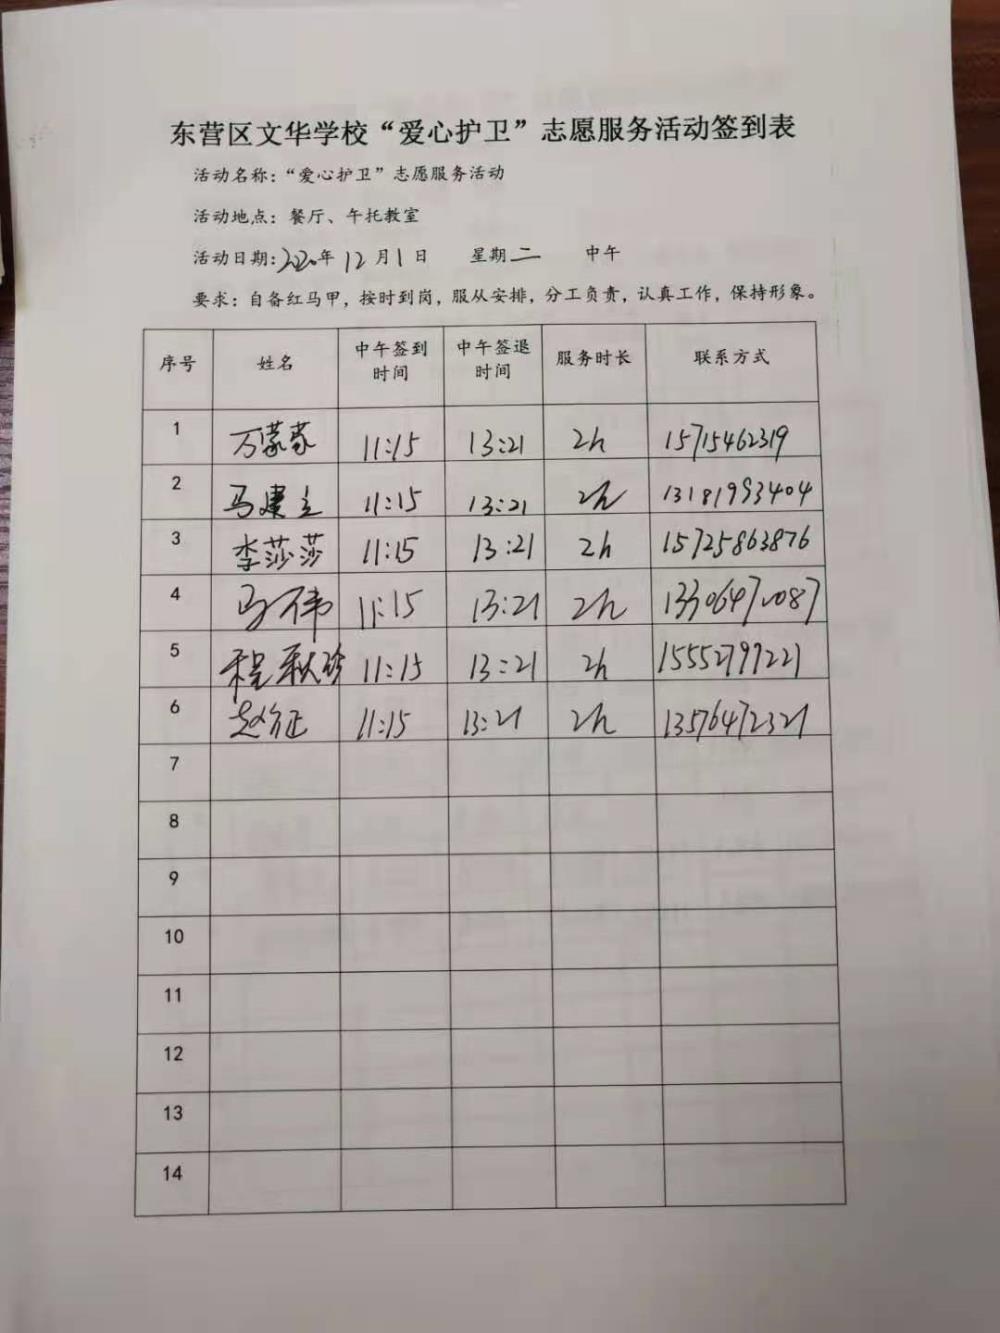 东营区文华学校“爱心护卫”志愿服务活动签到表
活动名称：“爱心护卫”志愿服务活动
活动地点：餐厅、午托教室
活动日期：2020年12月1日 星期二 中午
要求：自备红马甲，按时到岗，服从安排，分工负责，认真工作，保持形象。
序号 姓名 中午签到时间 中午签退时间 服务时长 联系方式
1 万蒙蒙 11:15 13:21 2h 15715462319
2 马建立 11:15 13:21 2h 13181993404
3 李莎莎 11:15 13:21 2h 15725863876
4 11:15 13:21 2h 13306470087
5 程秋珍 11:15 13:21 2h 15552799221
6 11:15 13:21 2h 13576472321
7
8
9
10
11
12
13
14